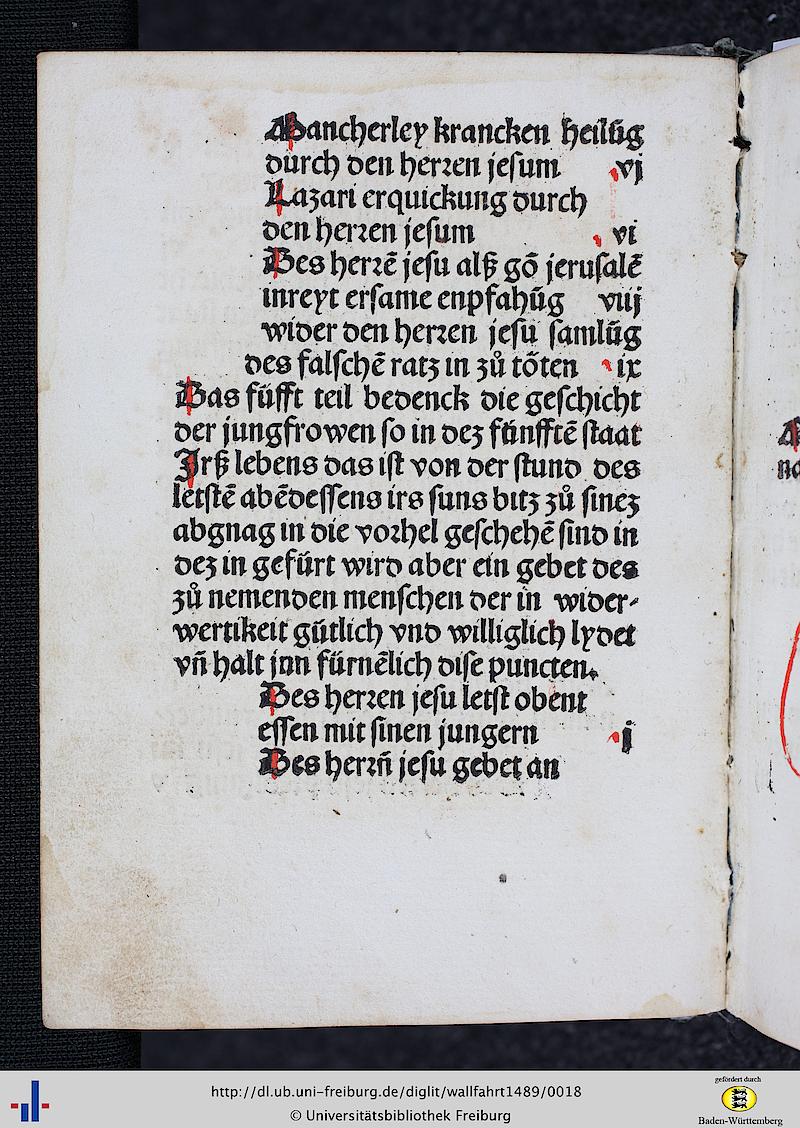 Mancherley krancken heilūg
durch den herren jesum vj
Lazari erquickung durch
den herren jesum vi
Des herrē jesu alß gō jerusalē
inreyt ersame enpfahūg viij
wider den herren jesu samlūg
des falschē ratz in zů töten ix
Das fūfft teil bedenck die geschicht
der jungfrowen so in dez fūnfftē staat
Irß lebens das ist von der stund des
letstē abēdessens irs suns bitz zů sinez
abgnag in die vorhel geschehē sind in
dez in gefürt wird aber ein gebet des
zů nemenden menschen der in wider-
wertikeit gütlich vnd williglich lydet
vñ halt jnn fürnēlich dise puncten.
Des herren jesu letst obent
essen mit sinen jungern j
Des herrñ jesu gebet an
http://dl.ub.uni-freiburg.de/diglit/wallfahrt1489/0018
© Universitätsbibliothek Freiburg
gefördert durch
Baden-Württemberg